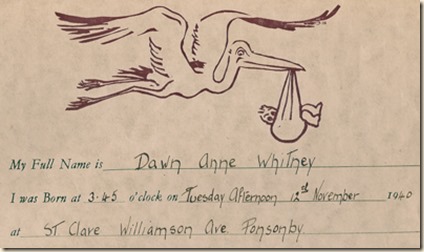 My Full Name is Dawn Anne Whitney
I was Born at 3.45 o'clock on Tuesday Afternoon 12st November 1940
at ST Clave Williamson Ave. Ponsonby